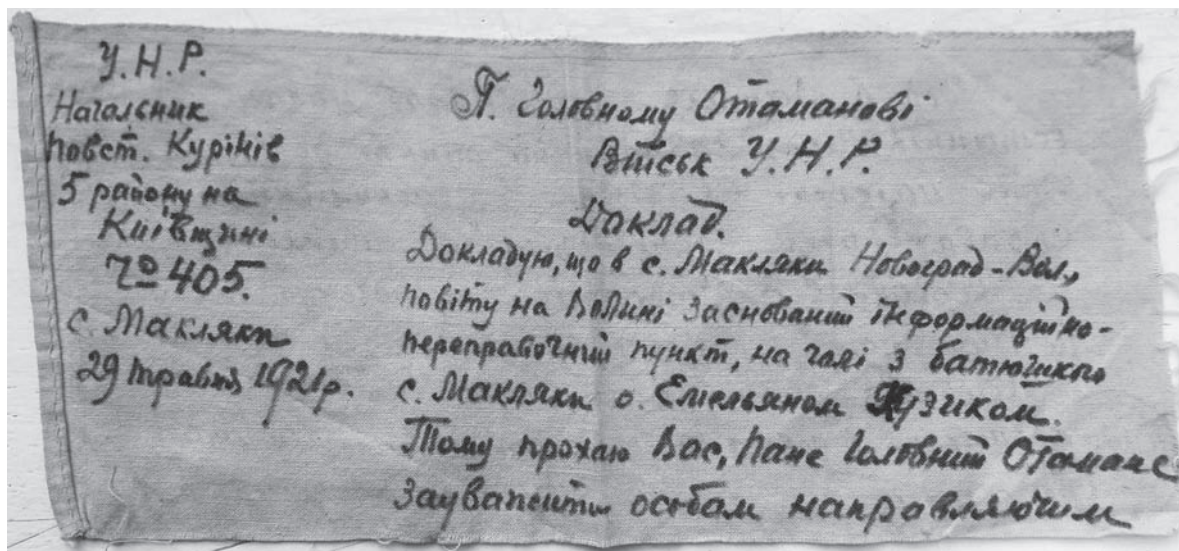 У.Н.Р.
Начальник
повст. Курінів
5 району на
Київщині
Чо 405.
с. Макляки
29 травня 1921р.
П. Головному Отаманові
Військ У.Н.Р.
Доклад.
Докладую, що в с. Макляки Новоград-Вол.,
повіту на Волині заснований інформаційно-
переправочний пункт, на чолі з батюшкою
с. Макляки о. Емельяном
Тому прохаю Вас, Пане Головний Отамане
зауважити особам направляючим